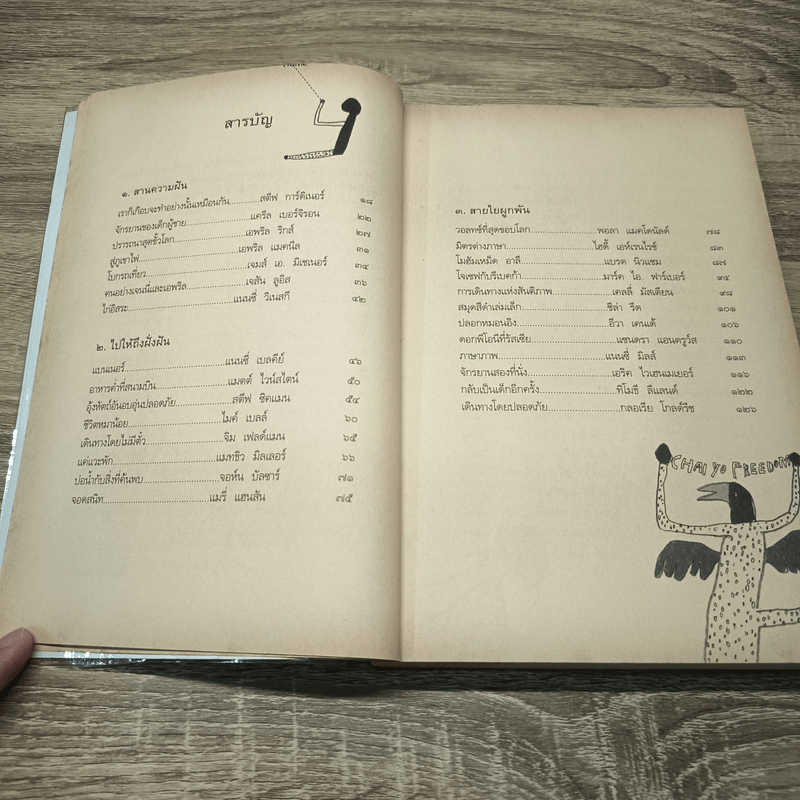 สารบัญ
๑. สานความฝัน
เราก็เกือบจะทำอย่างนั้นเหมือนกัน..........สตีฟ การ์ดิเนอร์ ๑๘
จักรยานของเด็กผู้ชาย..........แครีล เบอร์จิรอน ๒๒
ปรารถนาสุดขั้วโลก..........เอพริล ริกส์ ๒๗
สู่ภูเขาไฟ..........เอพริล แมคนีล ๓๑
โบกรถเที่ยว..........เจมส์ เอ. มิเชเนอร์ ๓๔
คนอย่างเจนนี่และเอพริล..........เจสัน ลูอิส ๓๖
ไกอิสระ..........แนนซี่ วิเนสกี ๔๒
๒. ไปให้ถึงฝั่งฝัน
แบนเนอร์..........แนนซี่ เบลคีย์ ๔๖
อาหารค่ำที่สนามบิน..........แมตต์ ไวน์สไตน์ ๕๐
อุ้งหัตถ์อันอบอุ่นปลอดภัย..........สตีฟ ซิคแมน ๕๔
ชีวิตหมาน้อย..........ไมค์ เบลส์ ๖๐
เดินทางโดยไม่มีตั๋ว..........จิม เฟลต์แมน ๖๕
แค่แวะพัก..........แมทธิว มิลเลอร์ ๖๖
บ่อน้ำกับสิ่งที่ค้นพบ..........จอห์น บัลซาร์ ๗๑
จอดสนิท..........แมรี่ แฮนสัน ๗๕
๓. สายใยผูกพัน
วอลทซ์ที่สุดขอบโลก..........พอลา แมคโดนัลด์ ๗๘
มิตรต่างภาษา..........ไฮดี้ เอห์เรนไรซ์ ๘๓
โมฮัมเหม็ด อาลี..........แบรด นิวแชม ๘๗
โจเซฟกับรีเบคก้า..........มาร์ค ไอ. ฟาร์เบอร์ ๙๔
การเดินทางแห่งสันติภาพ..........เคลลี่ มัสเตียน ๙๘
สมุดสีดำเล่มเล็ก..........ชีล่า รีด ๑๐๑
ปลอกหมอนอิง..........อีวา เคนเด้ ๑๐๖
ดอกพีโอนีที่รัสเซีย..........แซนดรา แอนดรูว์ส ๑๑๐
ภาษาภาพ..........แนนซี่ มิลส์ ๑๑๓
จักรยานสองที่นั่ง..........เอริค ไวเฮนเมเยอร์ ๑๑๖
กลับเป็นเด็กอีกครั้ง..........ทิโมธี ลีแลนด์ ๑๒๒
เดินทางโดยปลอดภัย..........กลอเรีย โกลด์รีช ๑๒๖
CHAI YO FREEDOM